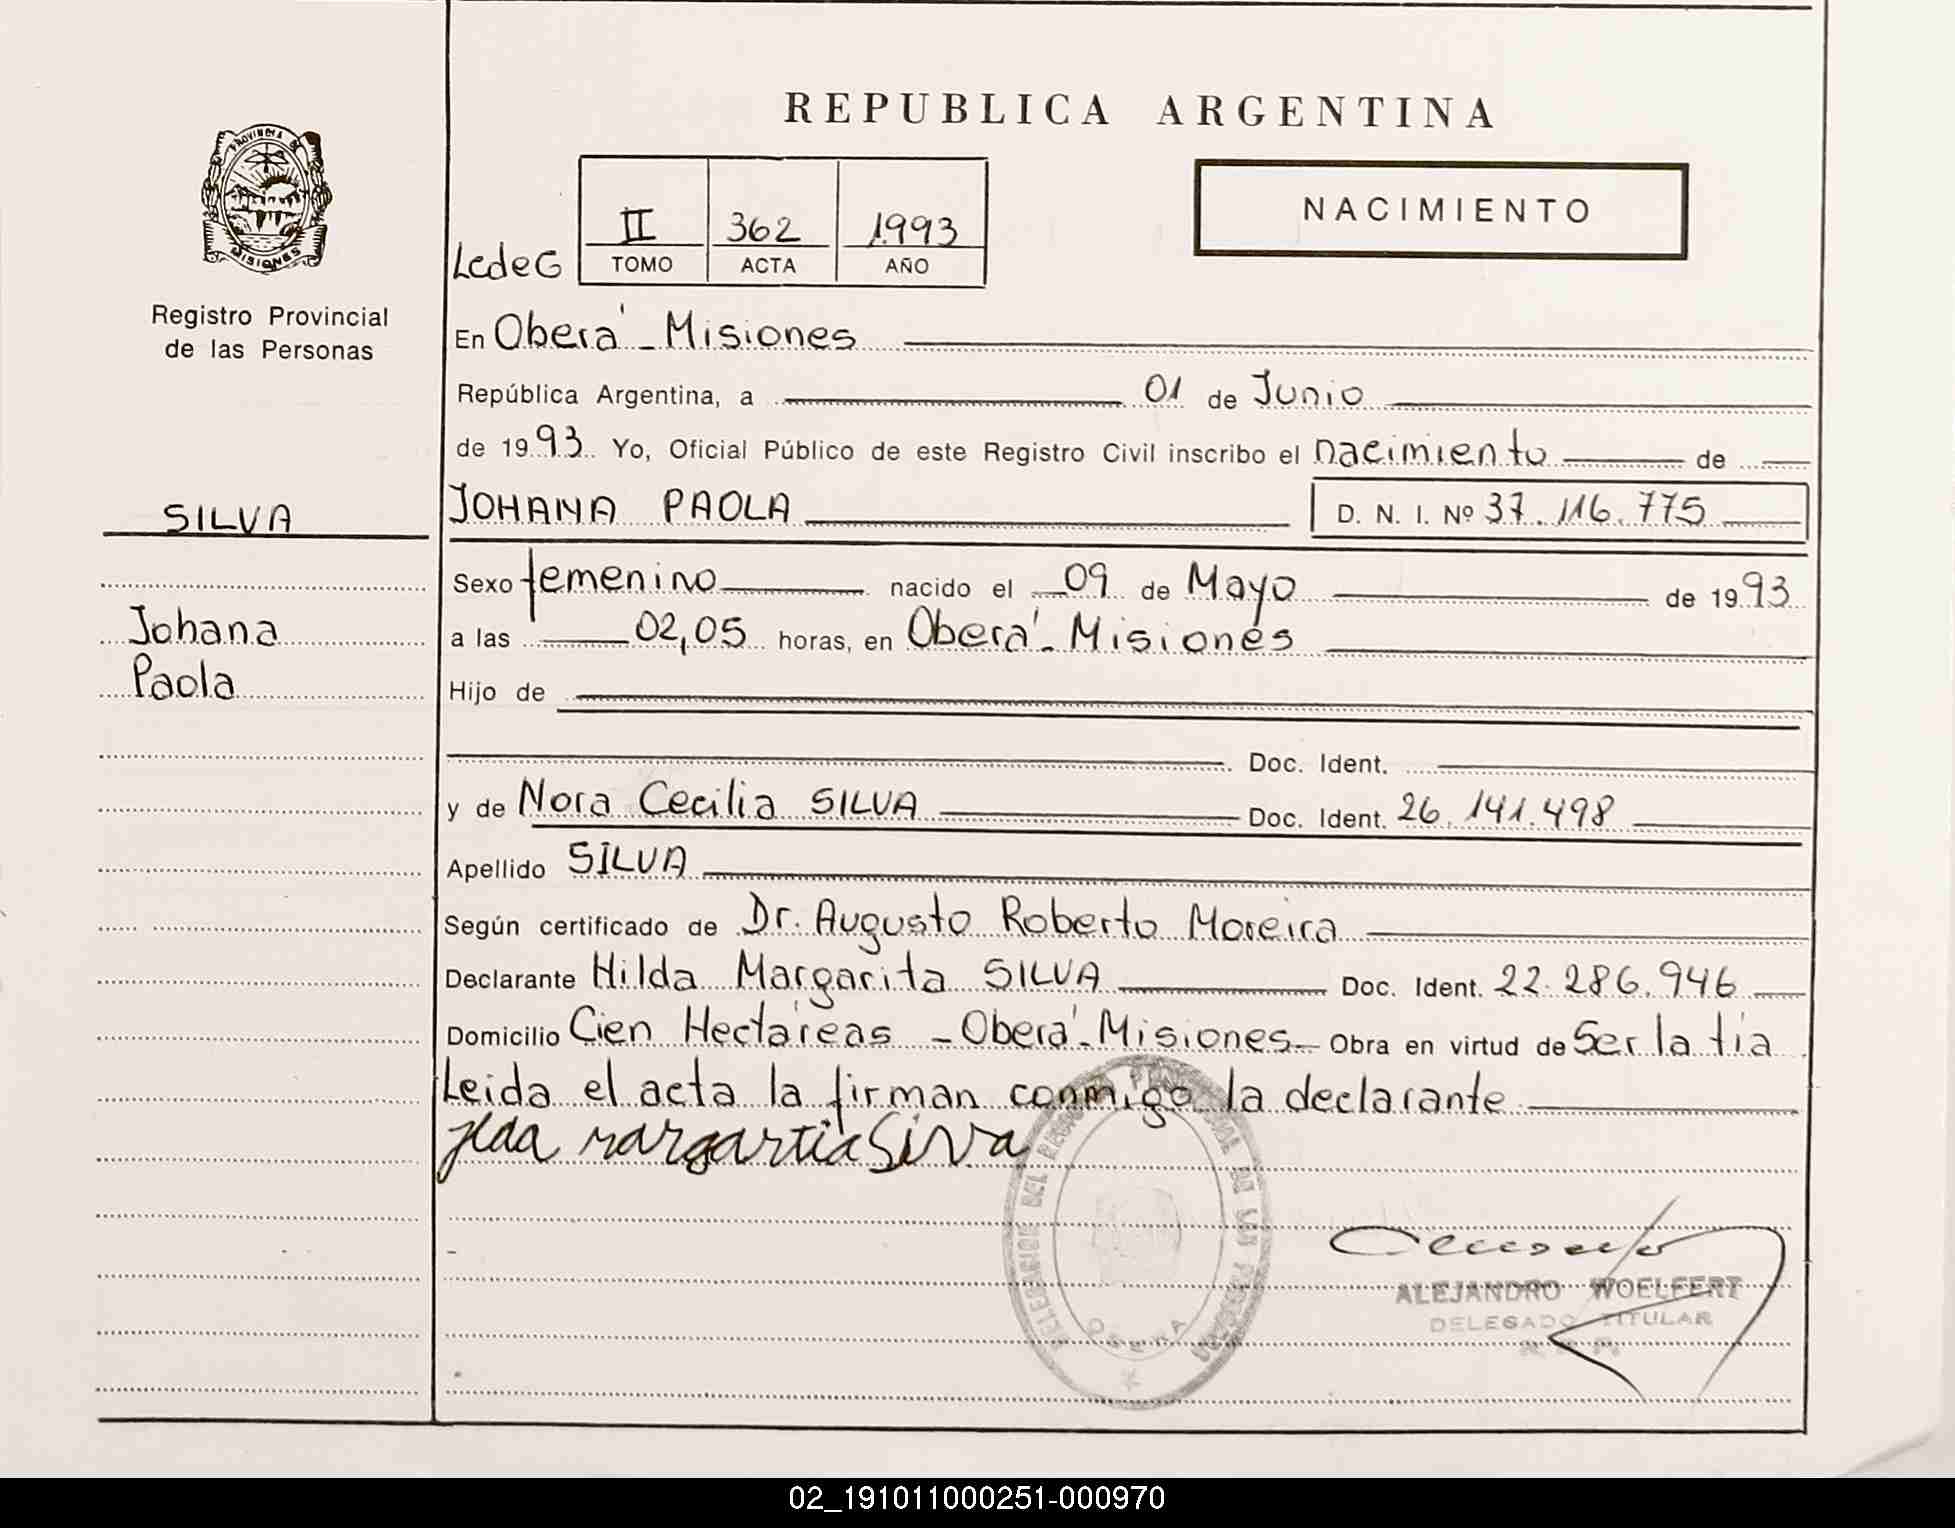 REPUBLICA ARGENTINA
PROVINCIA DE MISIONES
Registro Provincial
de las Personas
NACIMIENTO
LcdeG II 362 1993
TOMO ACTA AÑO
En Oberá - Misiones
República Argentina, a 01 de Junio
de 1993 Yo, Oficial Público de este Registro Civil inscribo el nacimiento de
SILVA
JOHANA PAOLA D. N. I. Nº 37.116.775
Sexo femenino nacido el 09 de Mayo de 1993
Johana
a las 02,05 horas, en Oberá - Misiones
Paola
Hijo de
Doc. Ident.
y de Nora Cecilia SILVA Doc. Ident. 26.141.498
Apellido SILVA
Según certificado de Dr. Augusto Roberto Moreira
Declarante Hilda Margarita SILVA Doc. Ident. 22.286.946
Domicilio Cien Hectáreas - Oberá - Misiones Obra en virtud de Ser la tía
Leida el acta la firman conmigo la declarante
Jlda Margartia Silva
DELEGACION DEL REGISTRO PROVINCIAL DE LAS PERSONAS
OBERA
ALEJANDRO WOELFERT
DELEGADO TITULAR
02_191011000251-000970